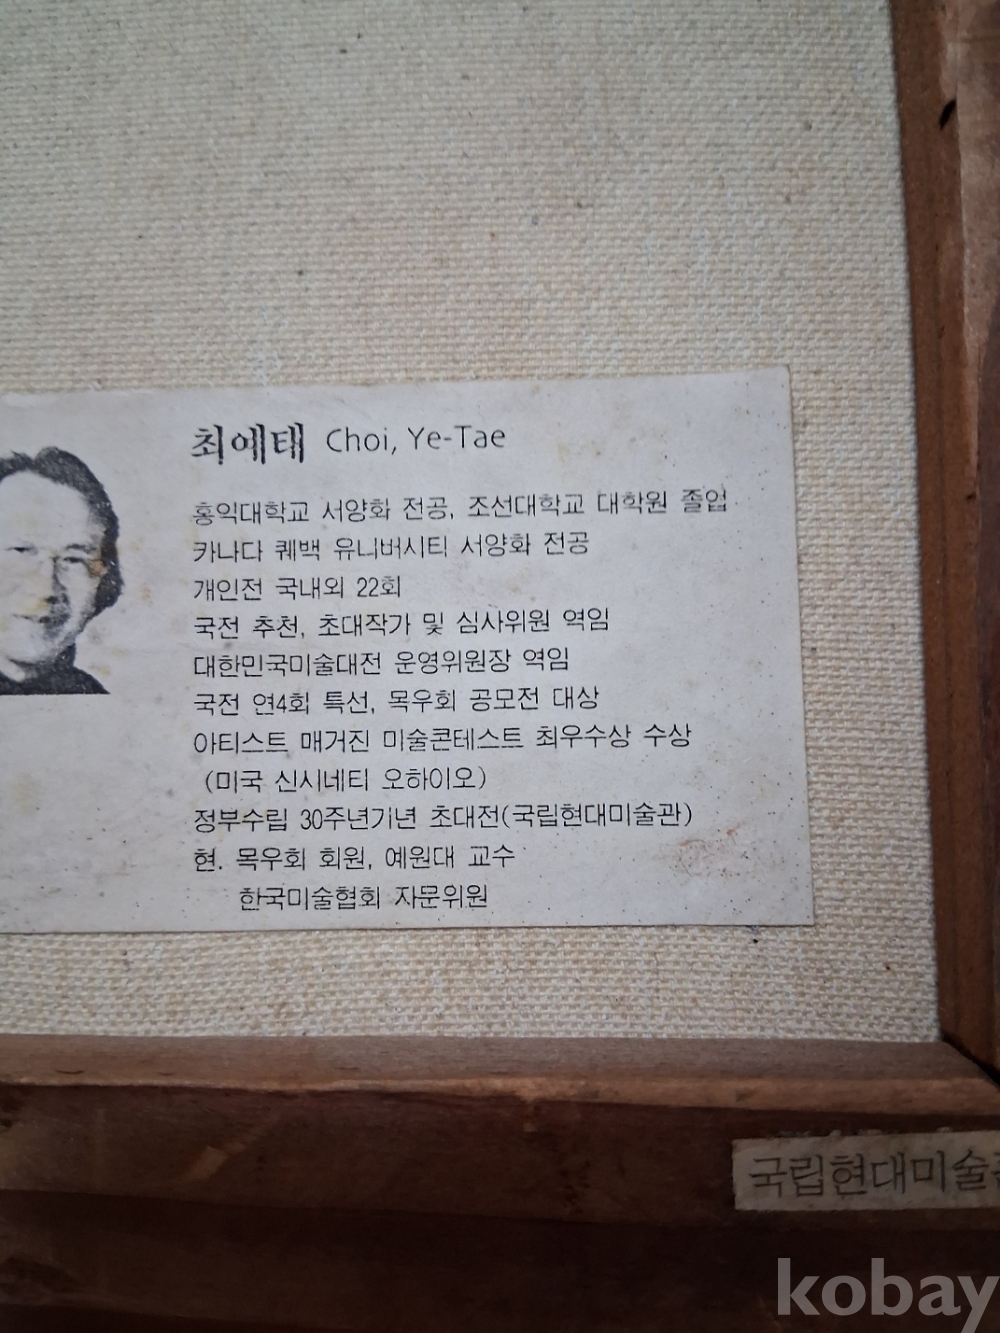 최예태 Choi, Ye-Tae
홍익대학교 서양화 전공, 조선대학교 대학원 졸업
카나다 퀘백 유니버시티 서양화 전공
개인전 국내외 22회
국전 추천, 초대작가 및 심사위원 역임
대한민국미술대전 운영위원장 역임
국전 연4회 특선, 목우회 공모전 대상
아티스트 매거진 미술콘테스트 최우수상 수상
(미국 신시네티 오하이오)
정부수립 30주년기년 초대전(국립현대미술관)
현. 목우회 회원, 예원대 교수
한국미술협회 자문위원
국립현대미술
kobay